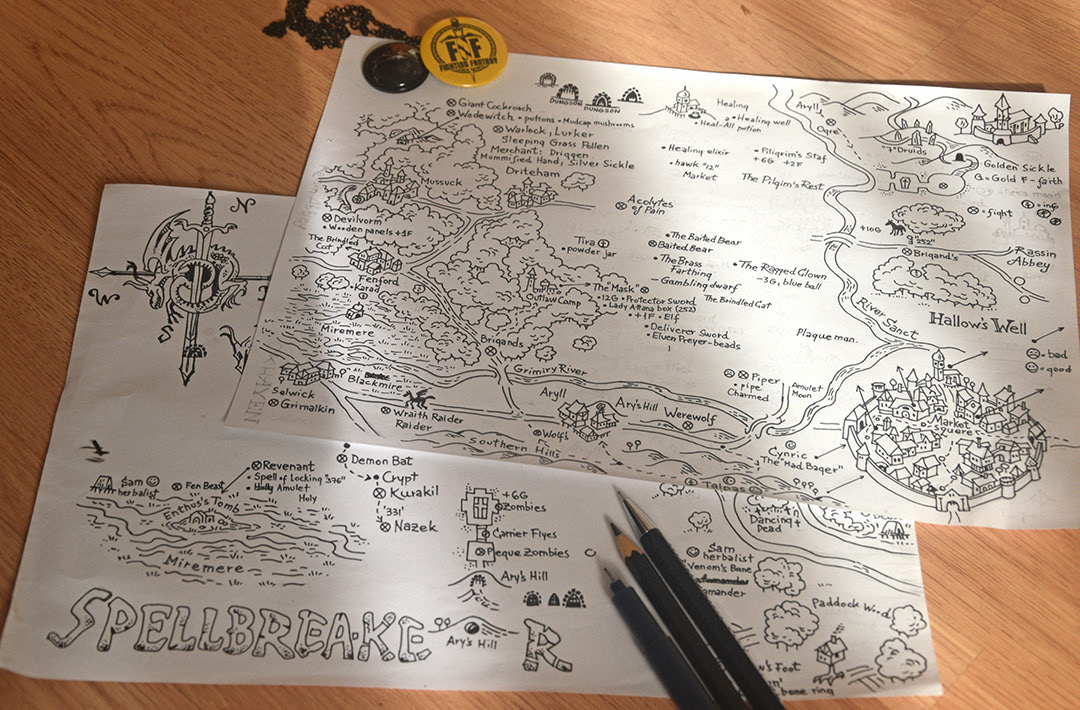 FF
FIGHTING FANTASY
Giant Cockroach
Wodewitch • potions • Mudcap mushrooms
Warlock, Lurker
Sleeping Grass Pollen
Merchant: Driggen
Mummified Hand, Silver Sickle
Driteham
Mussuck
Devilvorm
• Wooden panels +1F
The Brindled
Fenford
Karao
Miremere
DUNGEON
DUNGEON
Healing
• Healing well
• Heal-All potion
• Healing elixir
• hawk "12"
Market
• Pilgrim's Staf
+6G +2F
The Pilgim's Rest
Acolytes
of Pain
Tira
• powder jar
• The Baited Bear
Baited Bear
• The Brass
Farthing
Gambling dwarf
• The Rapped Glown
-3G, blue ball
The Brindled Gat
The "Mask"
Outlaw Camp
• 12G • Protector Sword
• Lady Attana box (252)
• +1F • Elf
• Deliverer Sword
• Elven Preyer-beads
Plaque man.
Brigands
Grimiry River
Blackmire
Selwick
Grimalkin
Wraith Raider
Raider
Aryll
Ary's Hill
Werewolf
Wolf's
Southern Hills
Piper
• pipe
Charmed
Amulet
Moon
Cynric
"The Mad Baqer"
Talpas
Aryll
Ogre
"7" Druids
Golden Sickle
G = Gold F - faith
- info
- fight
+10G
"252"
Brigand's
Rassin
Abbey
River Sanct
Hallow's Well
- bad
- good
Market
square
N
W
Sam
herbalist
Fen Beast
Revenant
• Spell of Locking "376"
• Holly Amulet
Holy
Enthus's Tomb
Miremere
Demon Bat
• Crypt
Kwakil
'331'
Nazek
+6G
Zombies
Carrier Flyes
Peque Zombies
Ary's Hill
Ary's Hill
SPELLBREAKE
R
Dancing
Dead
Sam
herbalist
Venom's Bane
Paddock Wood
's Foot
bone ring